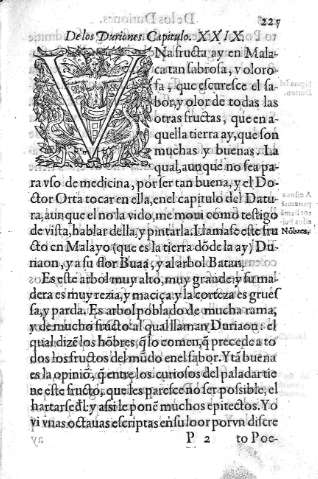 225
De los Duriones. Capitulo. XXIX.
VNa fructa ay en Mala-
ca tan sabrosa, y oloro-
sa, que escuresce el sa-
bor, y olor de todas las
otras fructas, que en a-
quella tierra ay, que son
muchas y buenas. La
qual, aunque no sea pa-
ra vso de medicina, por ser tan buena, y el Do-
ctor Orta tocar en ella, en el capitulo del Datu-
ra, aunque el no la vido, me moui como testigo
de vista, hablar della, y pintarla. Llamase este fru
cto en Malayo (que es la tierra dōde la ay) Du-
riaon, y a su flor Buaa, y al arbol Batan.
Nōbres.
Es este arbol muy alto, muy grande y su ma-
dera es muy rezia, y maciça y la corteza es grues
sa, y parda. Es arbol poblado de mucha rama,
y de mucho fructo al qual llaman Duriaon: el
qual dizē los hōbres, q̃ lo comen, q̃ precede a to
dos los fructos del mūdo en el sabor. Y tā buena
es la opiniō, q̃ entre los curiosos del paladar tie
ne este fructo, que les paresce no ser possible, el
hartarse dl̃, y assi le ponē muchos epitectos. Yo
vi vnas octauas escriptas en su loor por vn discre
P 2 to Poe-